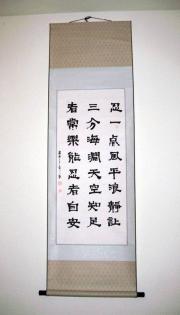 忍一点風平浪静让
三分海濶天空知足
者常樂能忍者自安